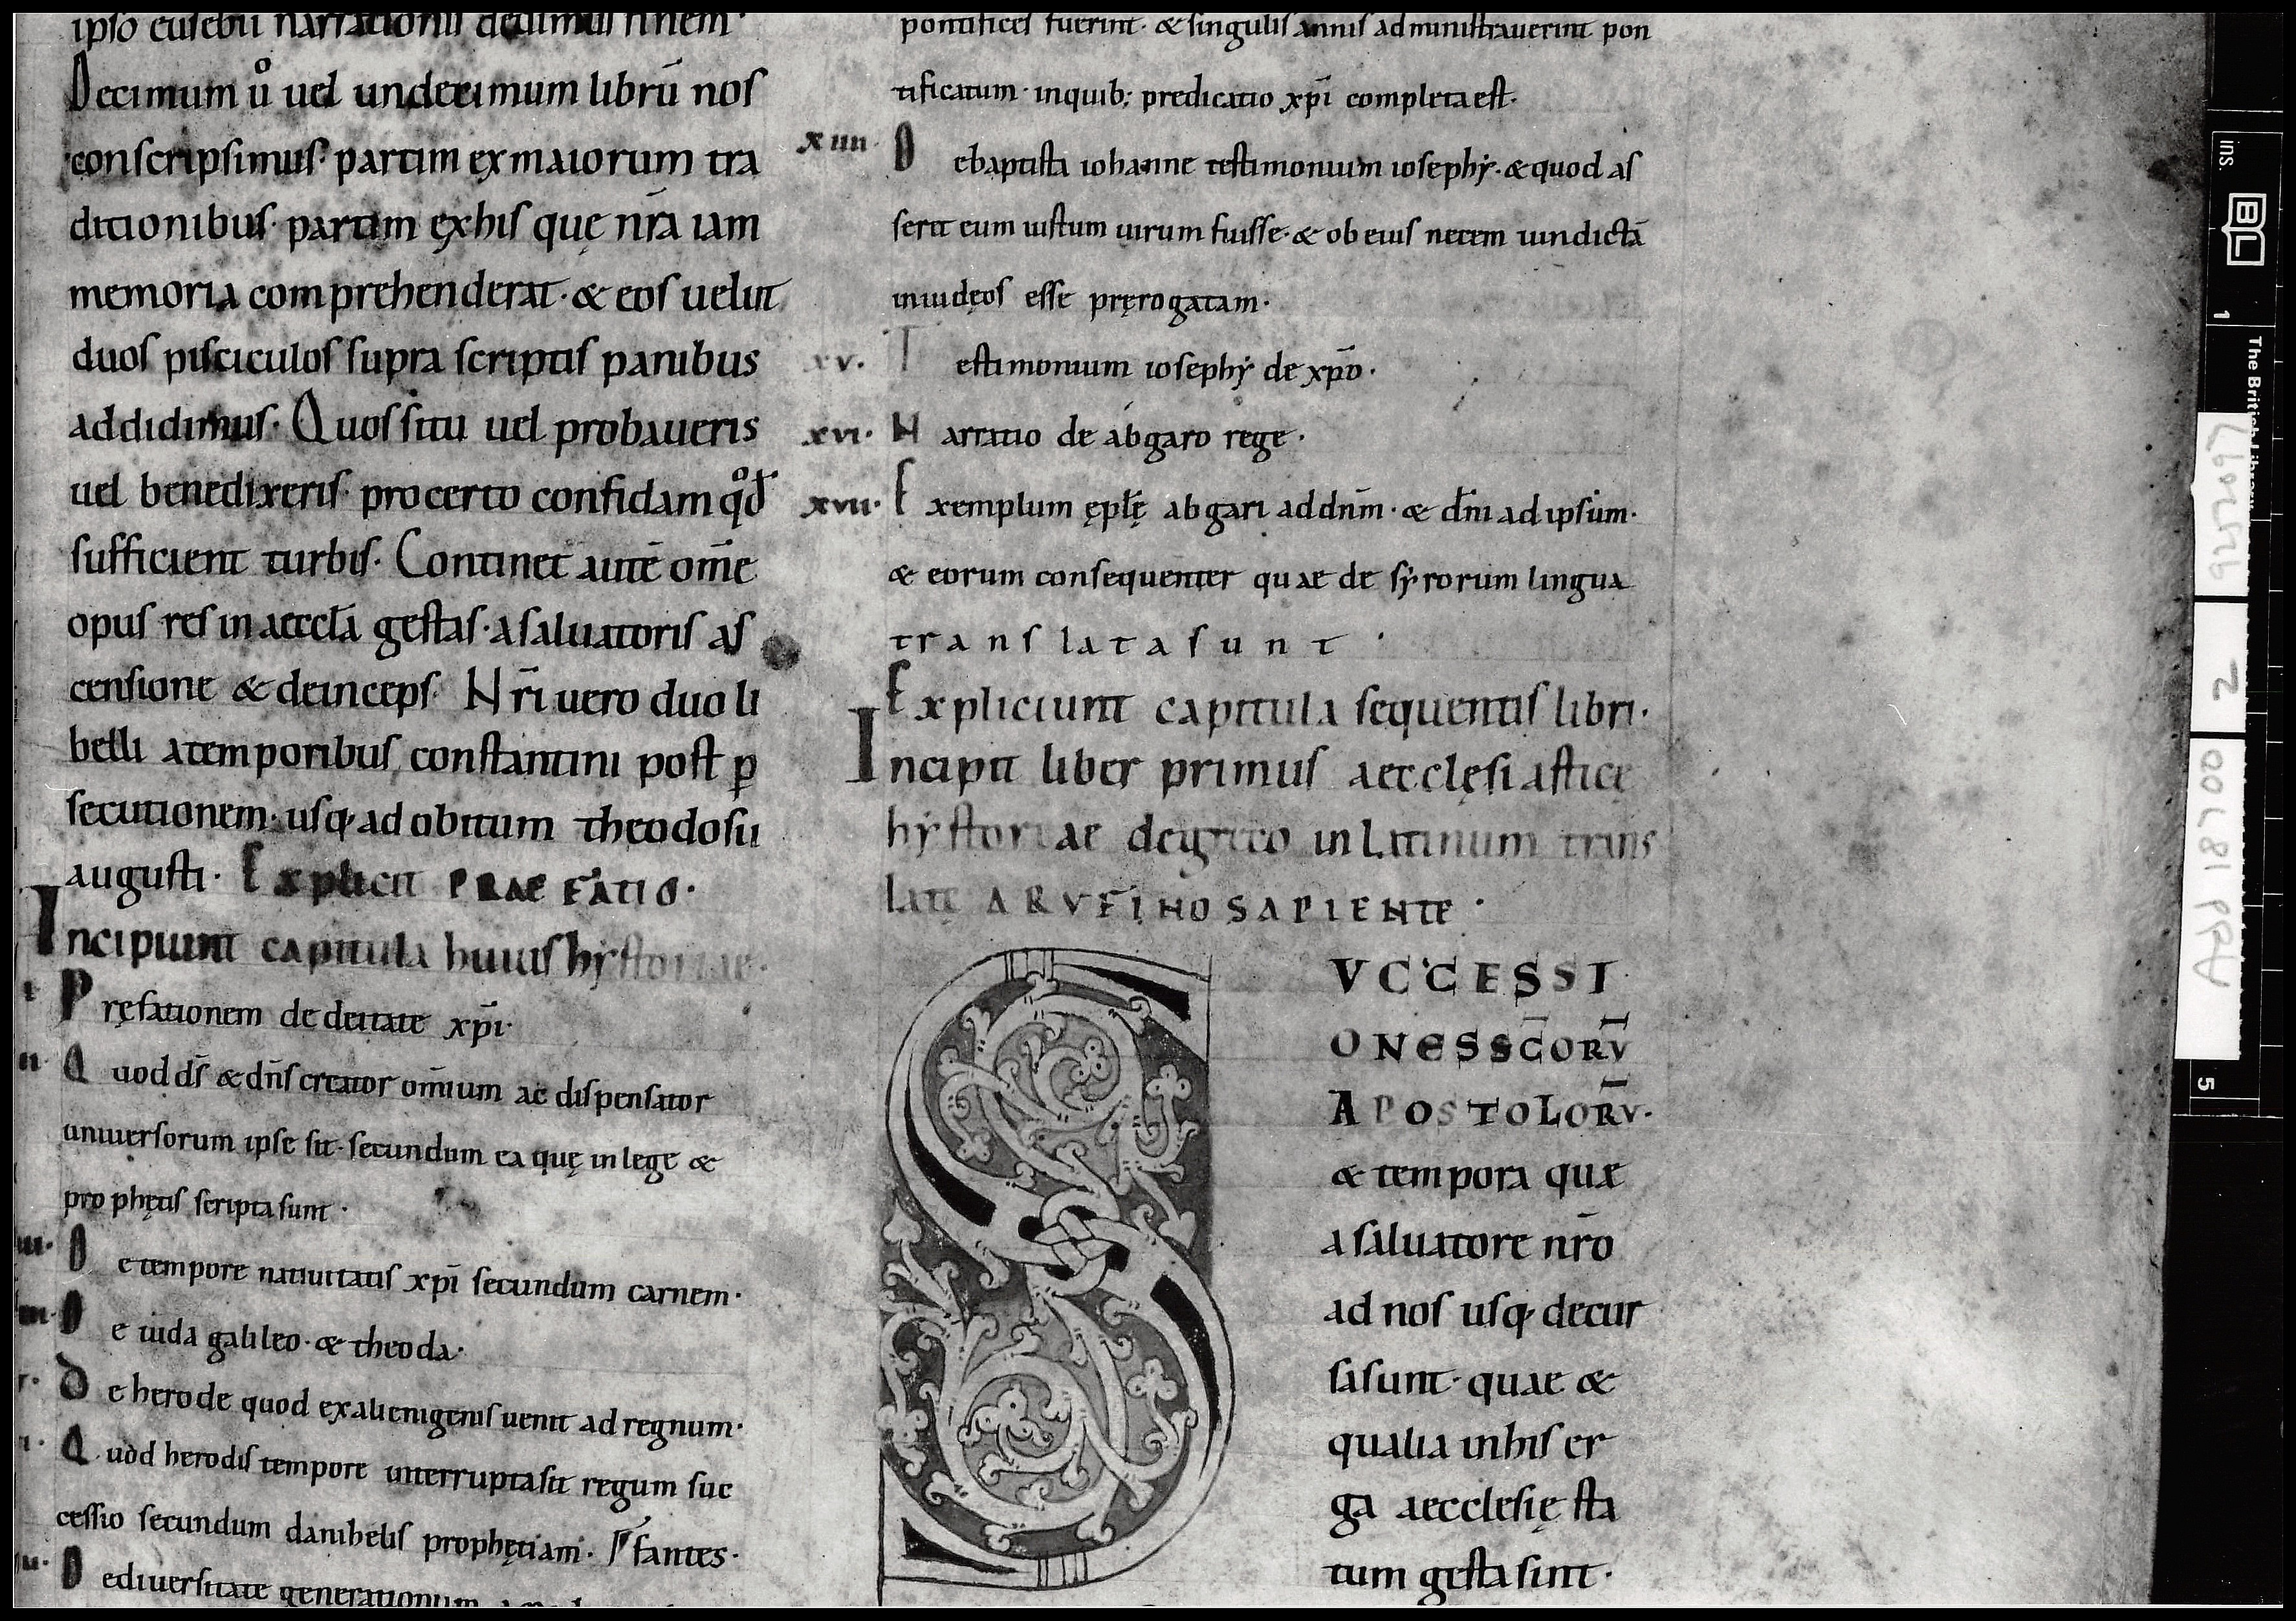 ipso eusebii narrationis dedimus finem·
Decimum ů uel undecimum librū nos
conscripsimus· partim ex maiorum tra
ditionibus· partim ex his quę nr̄a iam
memoria comprehenderat· & eos uelut
duos pisciculos supra scriptis panibus
addidimus· Quos si tu uel probaueris
uel benedixeris· pro certo confidam qd̊
sufficient turbis· Continet autē om̄e
opus res in aeccl̄a gestas· a saluatoris as
censione & deinceps· Nr̄i uero duo li
belli a temporibus constantini post ꝑ
secutionem· usq; ad obitum theodosii
augusti· Explicit PRAEFATIO·
Incipiunt capitula huius hystoriae·
i Pręfationem de deitate xp̄i·
ii Quod ds̄ & dn̄s creator om̄ium ac dispensator
uniuersorum ipse sit· secundum ea quę in lege &
prophętis scripta sunt·
iii· De tempore natiuitatis xp̄i secundum carnem·
iiii· De iuda galileo· & theoda·
De herode quod ex alienigenis uenit ad regnum·
Quod herodis tempore interrupta sit regum suc
cessio secundum danihelis prophętiam·
fantes·
De diuersitate generationum
pontifices fuerint· & singulis annis administrauerint pon
tificatum· in quib; predicatio xp̄i completa est·
xiiii· De baptista iohanne testimonium iosephy· & quod as
serit eum iustum uirum fuisse· & ob eius necem uindictā
in iudęos esse pręrogatam·
xv· Testimonium iosephy de xp̄o·
xvi· Narratio de abgaro rege·
xvii· Exemplum ępl̄ę abgari ad dn̄m· & dn̄i ad ipsum·
& eorum consequenter quae de syrorum lingua
translata sunt·
Expliciunt capitula sequentis libri·
Incipit liber primus aecclęsiasticę
hystoriae de gręco in Latinum trans
latę A RVFINO SAPIENTE·
SVCCESSI
ONES SC̄ORV̄
APOSTOLORV̄·
& tempora quae
a saluatore nr̄o
ad nos usq; decur
sa sunt· quae &
qualia in his er
ga aecclesię sta
tum gesta sint·
ins.
BL
1
The British Library
5
Add 18700
2